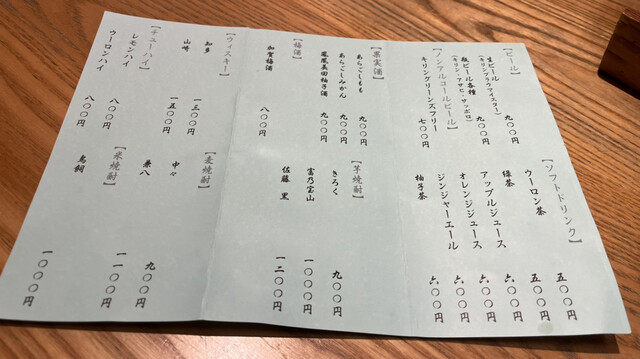 【ビール】
生ビール 九〇〇円
（キリンブラウマイスター）
瓶ビール各種 九〇〇円
（キリン・アサヒ・サッポロ）
【ノンアルコールビール】
キリングリーンズフリー 七〇〇円
【ソフトドリンク】
ウーロン茶 五〇〇円
緑茶 五〇〇円
アップルジュース 六〇〇円
オレンジジュース 六〇〇円
ジンジャーエール 六〇〇円
柚子茶 六〇〇円
【果実酒】
あらごしもも 九〇〇円
あらごしみかん 九〇〇円
鳳凰美田柚子酒 九〇〇円
【梅酒】
加賀梅酒 八〇〇円
【芋焼酎】
きろく 九〇〇円
富乃宝山 一〇〇〇円
佐藤 黒 一二〇〇円
【ウィスキー】
知多 一三〇〇円
山崎 一五〇〇円
【チューハイ】
レモンハイ 八〇〇円
ウーロンハイ 八〇〇円
【麦焼酎】
中々 九〇〇円
兼八 一一〇〇円
【米焼酎】
鳥飼 一〇〇〇円